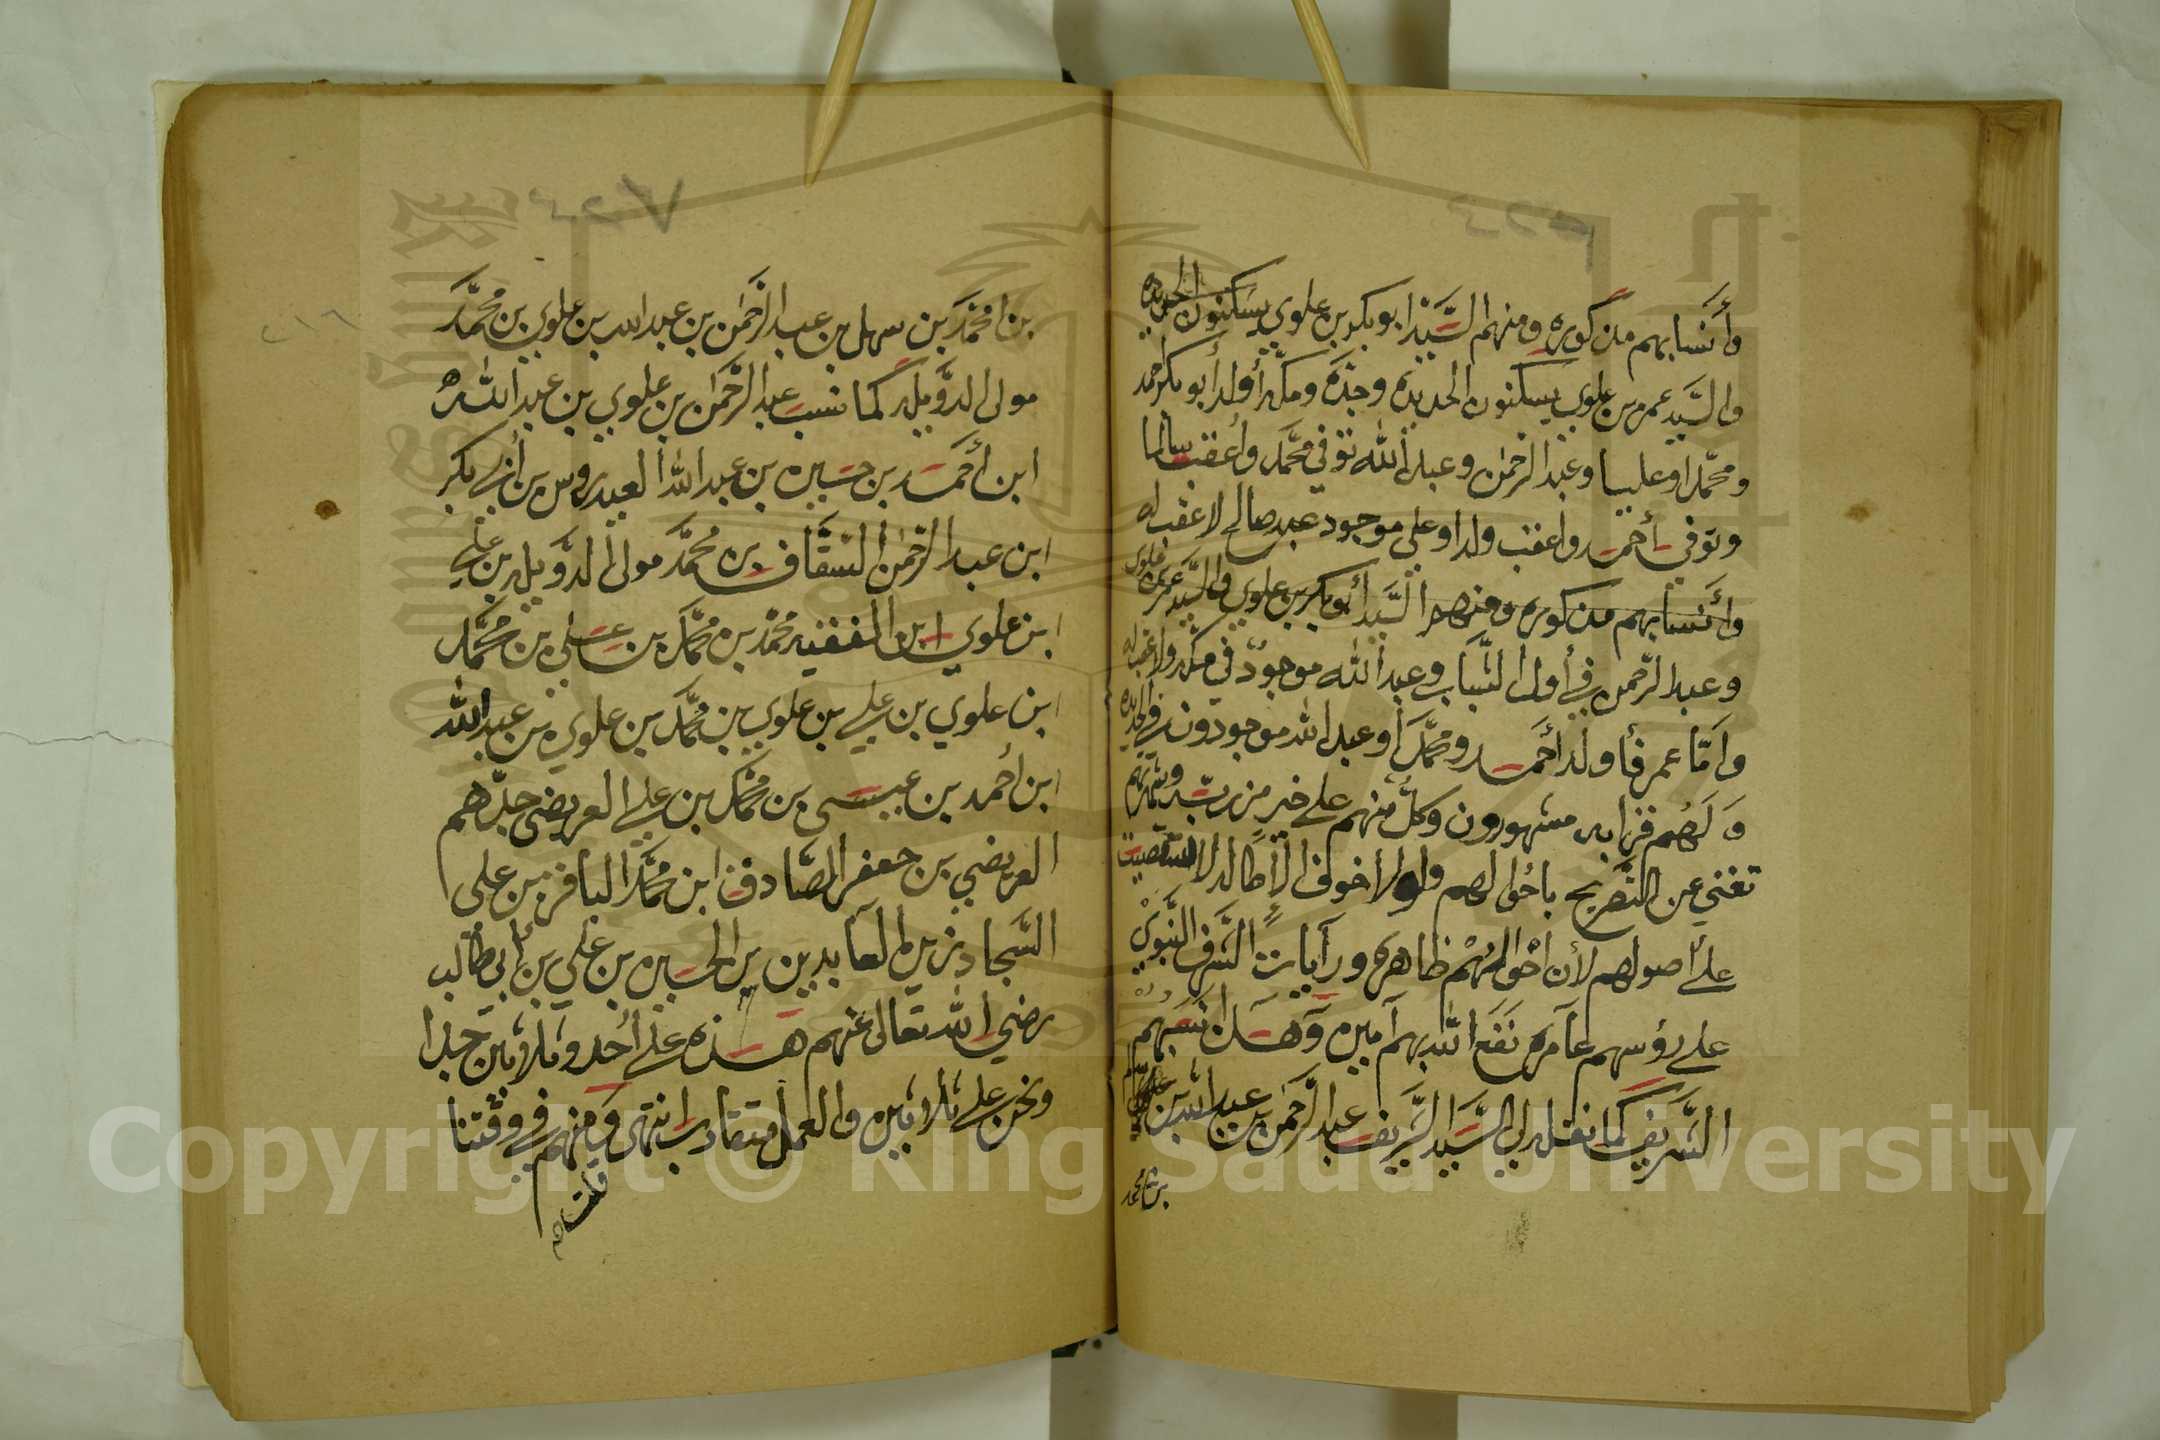 وأنسابهم مذكورة ومنهم السيد ابو بكر بن علوي يسكنون الحديده
والسيد عمر بن علوي يسكنون الحديده وجده ومكه أولد أبو بكر احمد
ومحمدا وعليا وعبد الرحمن وعبد الله توفي محمد وأعقب سالما
وتوفي أحمد واعقب ولدا وعلي موجود عبد صالح لا عقب له
وأنسابهم مذكورة ومنهم السيد أبو بكر بن علوي والسيد عمر بن علوي
وعبد الرحمن في أول الشباب وعبد الله موجود في مكه ولا عقب له
وأما عمر فأولد أحمد ومحمدا وعبد الله موجودون في الحديده
ولهم قرابه مشهورون وكل منهم على خير من ربه وشهرتهم
تغني عن التصريح باحوالهم ولولا خوف الأطاله لاستقصيت
على أصولهم لأن احوالهم ظاهرة ورآيات الشرف النبوي
على رؤسهم عامرة نفع الله بهم آمين وهذا نسبهم
الشريف كما نقله لي السيد الشريف عبد الرحمن بن عبد الله بن علي
بن محمد
بن محمد بن سهل بن عبد الرحمن بن عبد الله بن علوي بن محمد
مولى الدويله كما نسب عبد الرحمن بن علوي بن عبد الله
ابن أحمد بن حسين بن عبد الله العيدروس بن أبي بكر
ابن عبد الرحمن السقاف بن محمد مولى الدويله بن علي
ابن علوي ابن الفقيه محمد بن محمد بن علي بن محمد
ابن علوي بن علي بن علوي بن محمد بن علوي بن عبد الله
ابن أحمد بن عيسى بن محمد بن علي العريضي جدهم
العريضي بن جعفر الصادق ابن محمد الباقر بن علي
السجاد زين العابدين بن الحسين بن علي بن أبي طالب
رضي الله تعالى عنهم هذه على أحد وثلاثين جدا
ونحن على ثلاثين والعمل متقارب انتهى ومنهم في وقتنا
قلت
Copyright © King Saud University